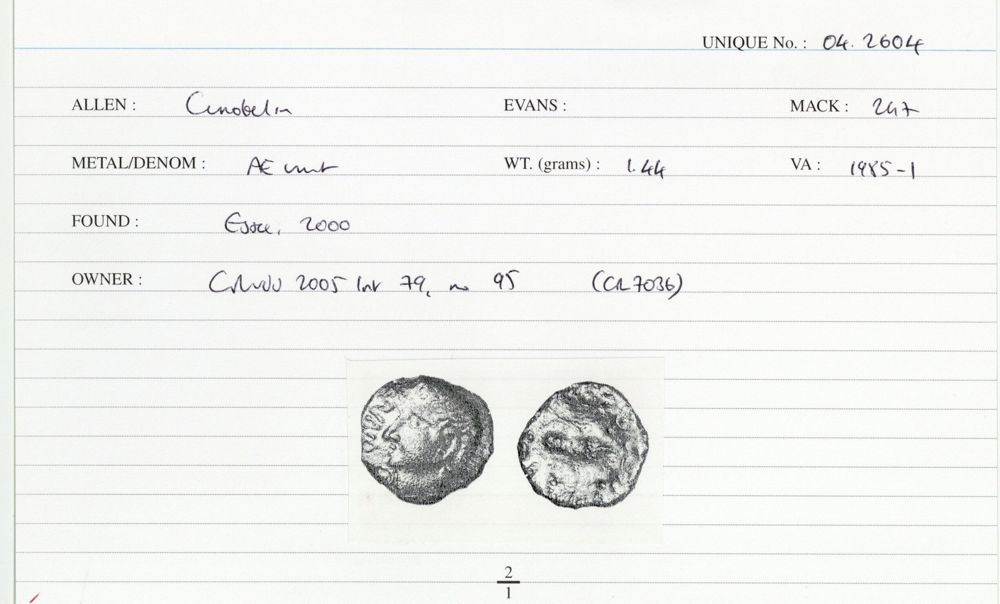 UNIQUE No. : 04. 2604
ALLEN : Cunobelin EVANS : MACK : 247
METAL/DENOM : AE unit WT. (grams) : 1.44 VA : 1985-1
FOUND : Essex, 2000
OWNER : 2005 list 79, no 95 (CR 7036)
2
1